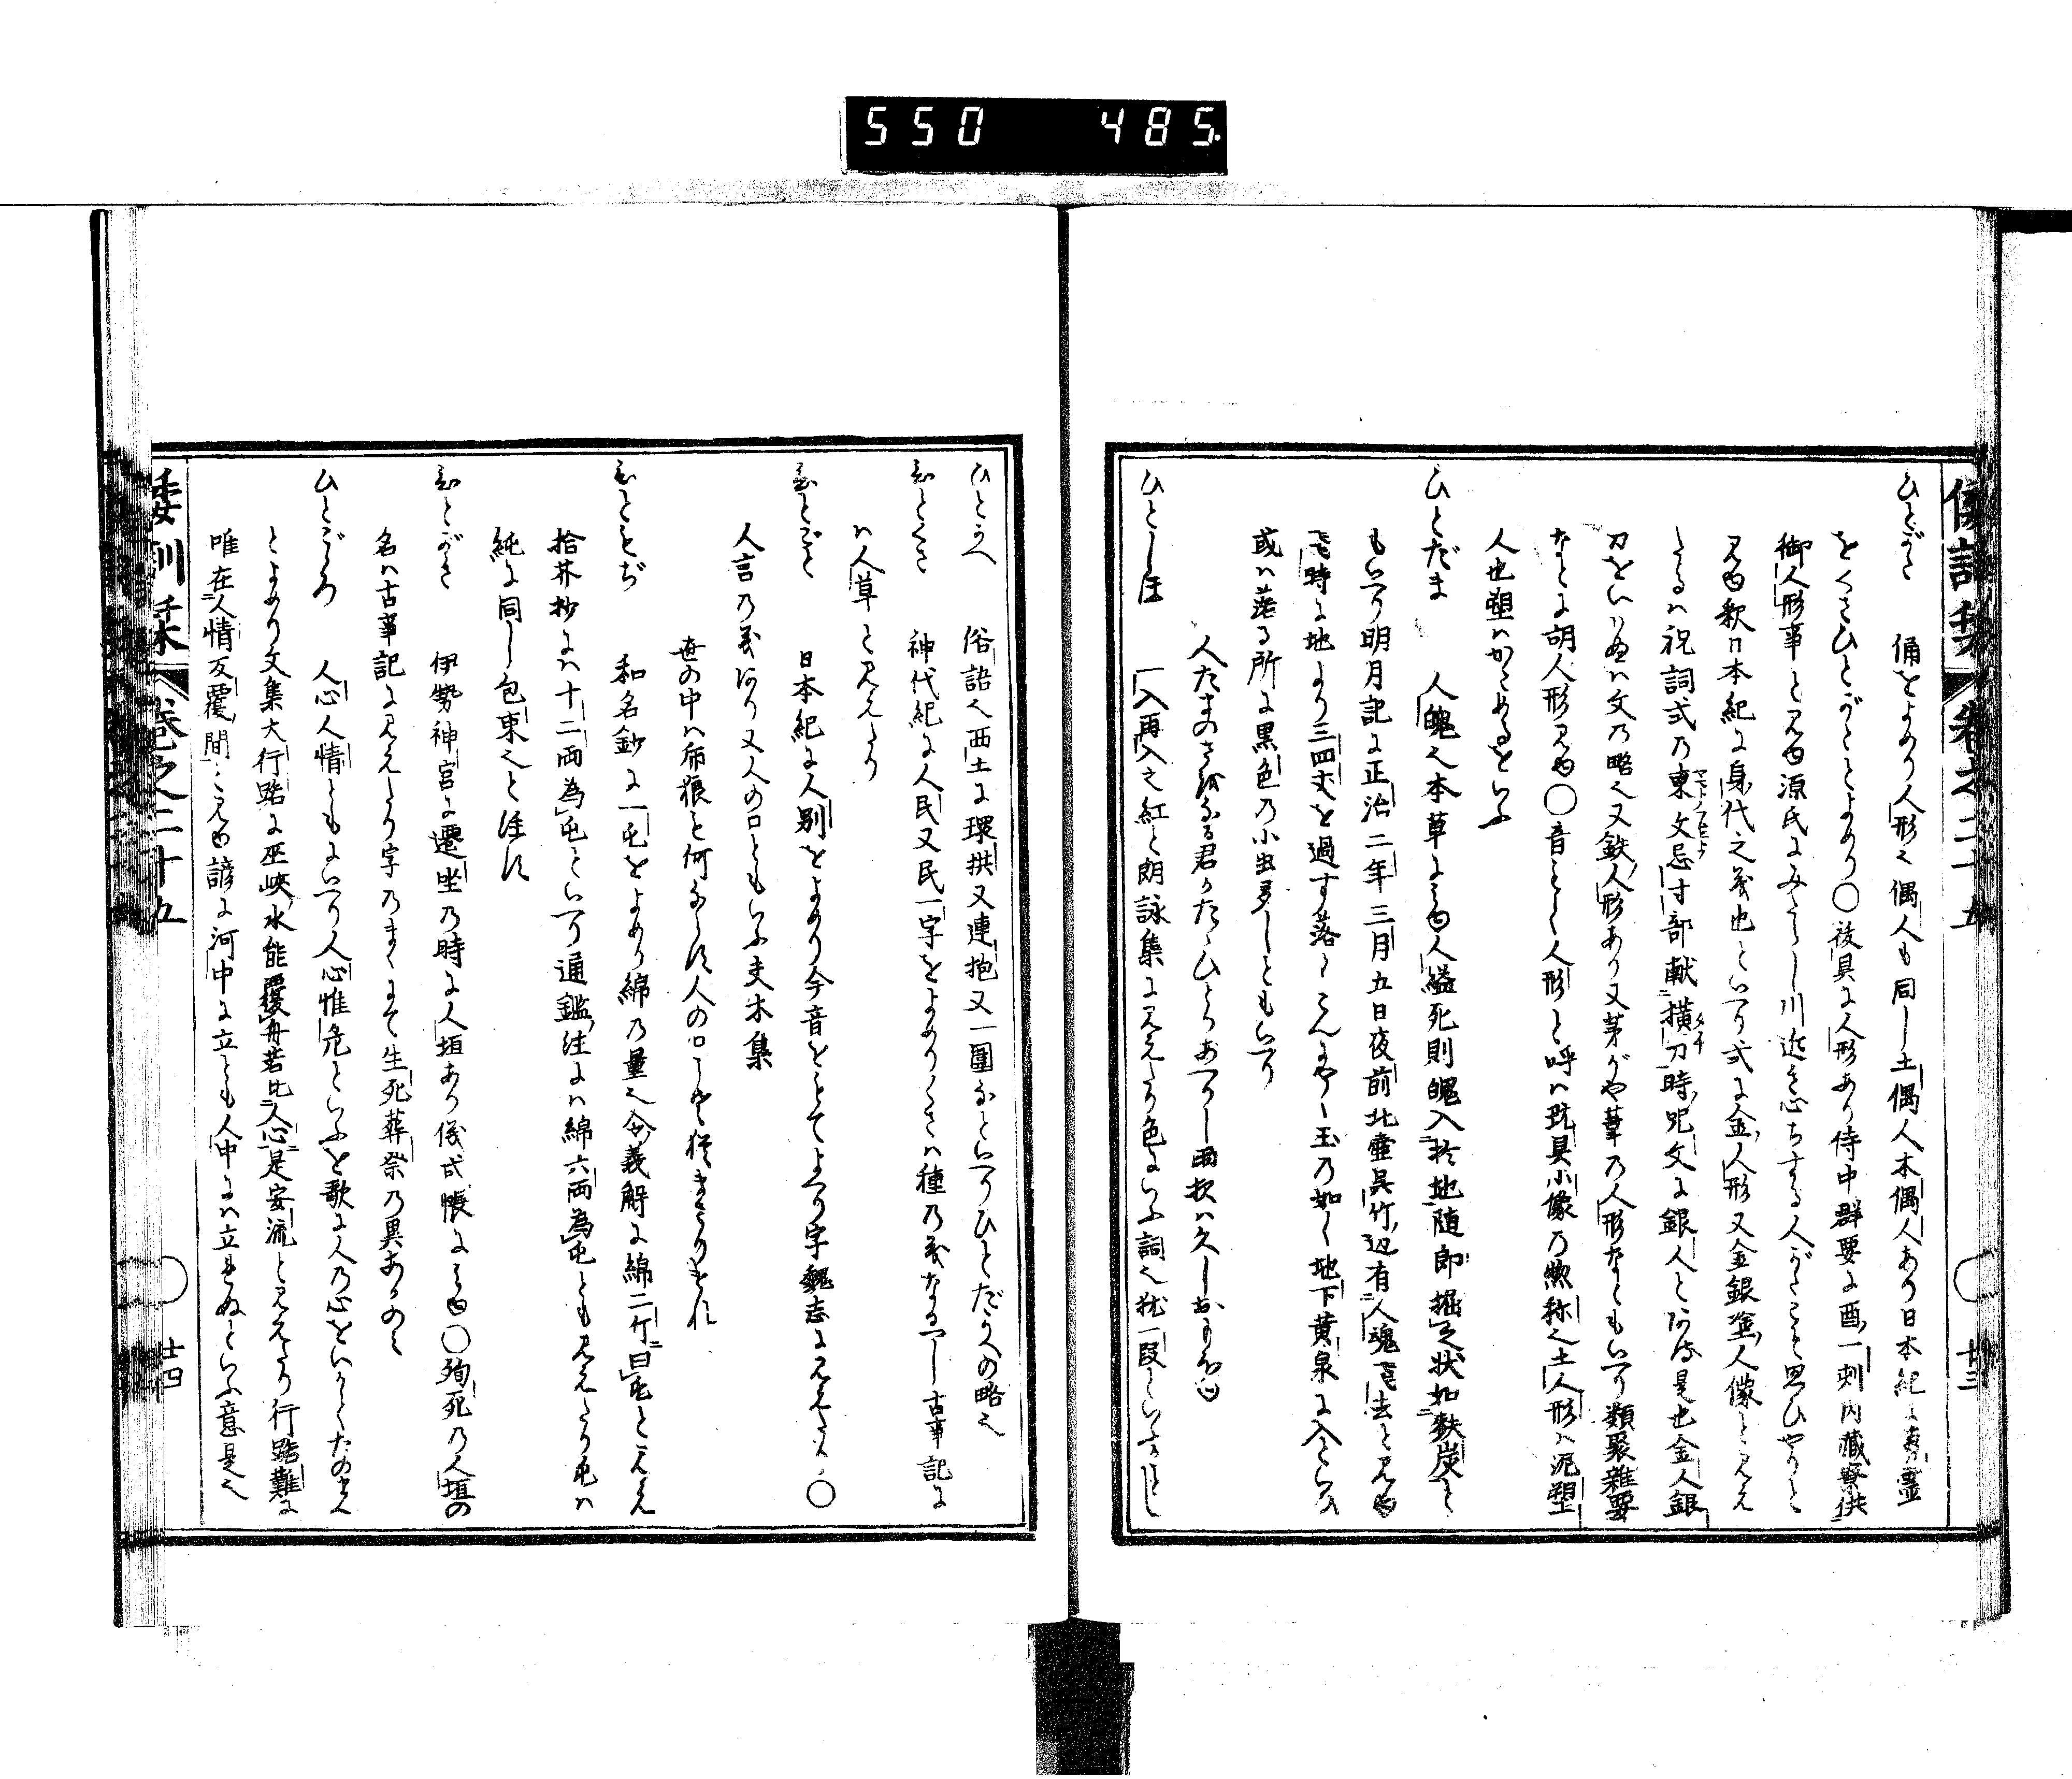 550 485
倭訓栞 卷之二十五 廿三
ひとがた 俑をよめり人形也偶人も同し土偶人木偶人あり日本紀に蒭靈
をくさひとがたとよめり〇後具に人形あり侍中群要に酉一刻内藏寮供
御人形事と見ゆ源氏にみたらし川近き心ちする人がたこそ思ひやりと
見ゆ釈日本紀に身代之義也といへり式に金人形又金銀塗人像と見え
たるは祝詞式乃東文忌寸部献横刀時呪文に銀人とある是也金人銀
刀をいはぬは文乃略也又鉄人形あり又茅がや葦乃人形なともいへり類聚雑要
なとに胡人形見ゆ〇音として人形と呼は玩具小像乃惣称也土人形は泥塑
人也塑はかためるをいふ
ひとだま 人魄也本草にみゆ人縊死則魄入於地随即掘之状如麩炭と
もいへり明月記に正治二年三月五日夜前北壷呉竹辺有人魂飛去と見ゆ
飛時に地より三四丈を過す落てこんにやく玉乃如く地下黄泉に入といひ
或は落る所に黒色乃小虫多しともいへり
人たまのさをなる君かたゝひとりあへりし雨夜は久しおもほゆ
ひとしほ 一入再入之紅と朗詠集に見えたり色にいふ詞也猶一段といふかことし
ひとかへ 俗語也西土に環拱又連抱又一圍なといへりひとだかへの略也
ひとくさ 神代紀に人民又民一字をよめりくさは種乃義なるへし古事記に
は人草と見えたり
ひとごと 日本紀に人別をよめり今音をもてよへり字魏志に見えたり〇
人言乃義あり又人の口ともいふ夫木集
世の中は虎狼も何ならす人の口こそ猶まさりけれ
ひともぢ 和名鈔に一屯をよめり綿乃量也令義解に綿二斤曰屯と見え
拾芥抄には十二両為屯といへり通鑑注には綿六両為屯とも見えたり屯は
純に同し包束也と注す
ひとがき 伊勢神宮に遷坐乃時に人垣あり儀式帳にみゆ〇殉死乃人垣の
名は古事記に見えたり字乃まゝにて生死葬祭乃異あるのみ
ひとごゝろ 人心人情ともにいへり人心惟危といふを歌に人乃心をいかゝたのまん
とよめり文集大行路に巫峡水能覆舟若比人心是安流と見えたり行路難に
唯在人情反覆間と見ゆ諺に河中に立とも人中には立たれぬといふ意是也
倭訓栞 卷之二十五 廿四